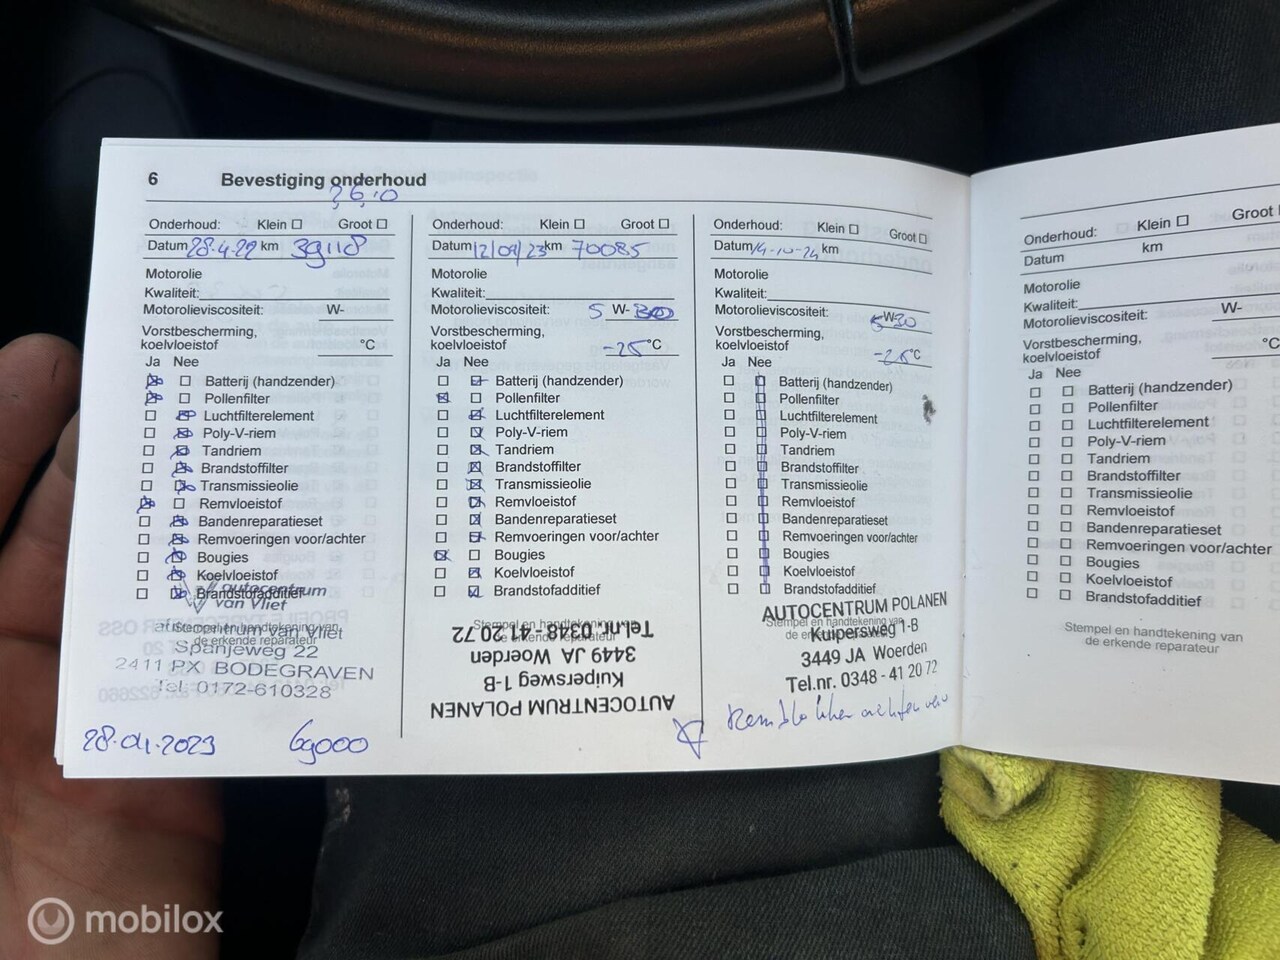 6 Bevestiging onderhoud
Onderhoud: Klein Groot
Datum 28.4.22 km 39118
Motorolie
Kwaliteit:
Motorolieviscositeit: W-
Vorstbescherming,
koelvloeistof °C
Ja Nee
Batterij (handzender)
Pollenfilter
Luchtfilterelement
Poly-V-riem
Tandriem
Brandstoffilter
Transmissieolie
Remvloeistof
Bandenreparatieset
Remvoeringen voor/achter
Bougies
Koelvloeistof
Brandstofadditief
autocentrum
van Vliet
Stempel en handtekening van
de erkende reparateur
autocentrum van Vliet
Spanjeweg 22
2411 PX BODEGRAVEN
Tel: 0172-610328
28.04.2023 69000
Onderhoud: Klein Groot
Datum 12/09/23 km 70085
Motorolie
Kwaliteit:
Motorolieviscositeit: 5 W-
Vorstbescherming,
koelvloeistof -25 °C
Ja Nee
Batterij (handzender)
Pollenfilter
Luchtfilterelement
Poly-V-riem
Tandriem
Brandstoffilter
Transmissieolie
Remvloeistof
Bandenreparatieset
Remvoeringen voor/achter
Bougies
Koelvloeistof
Brandstofadditief
Stempel en handtekening van
de erkende reparateur
AUTOCENTRUM POLANEN
Kuipersweg 1-B
3449 JA Woerden
Tel.nr. 0348 - 41 20 72
Onderhoud: Klein Groot
Datum 14-10-24 km
Motorolie
Kwaliteit:
Motorolieviscositeit: 5 W- 30
Vorstbescherming,
koelvloeistof -25 °C
Ja Nee
Batterij (handzender)
Pollenfilter
Luchtfilterelement
Poly-V-riem
Tandriem
Brandstoffilter
Transmissieolie
Remvloeistof
Bandenreparatieset
Remvoeringen voor/achter
Bougies
Koelvloeistof
Brandstofadditief
Stempel en handtekening van
de erkende reparateur
AUTOCENTRUM POLANEN
Kuipersweg 1-B
3449 JA Woerden
Tel.nr. 0348 - 41 20 72
Onderhoud: Klein Groot
Datum km
Motorolie
Kwaliteit:
Motorolieviscositeit: W-
Vorstbescherming,
koelvloeistof °C
Ja Nee
Batterij (handzender)
Pollenfilter
Luchtfilterelement
Poly-V-riem
Tandriem
Brandstoffilter
Transmissieolie
Remvloeistof
Bandenreparatieset
Remvoeringen voor/achter
Bougies
Koelvloeistof
Brandstofadditief
Stempel en handtekening van
de erkende reparateur
mobilox